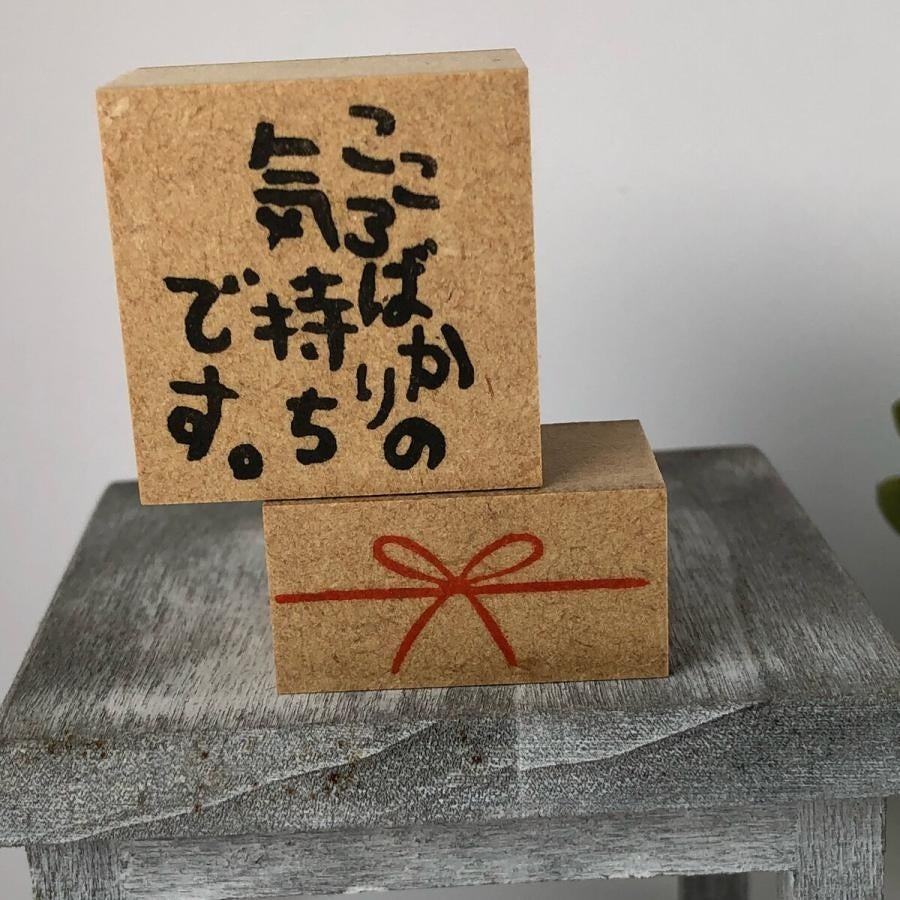 こころばかりの
気持ち
です。